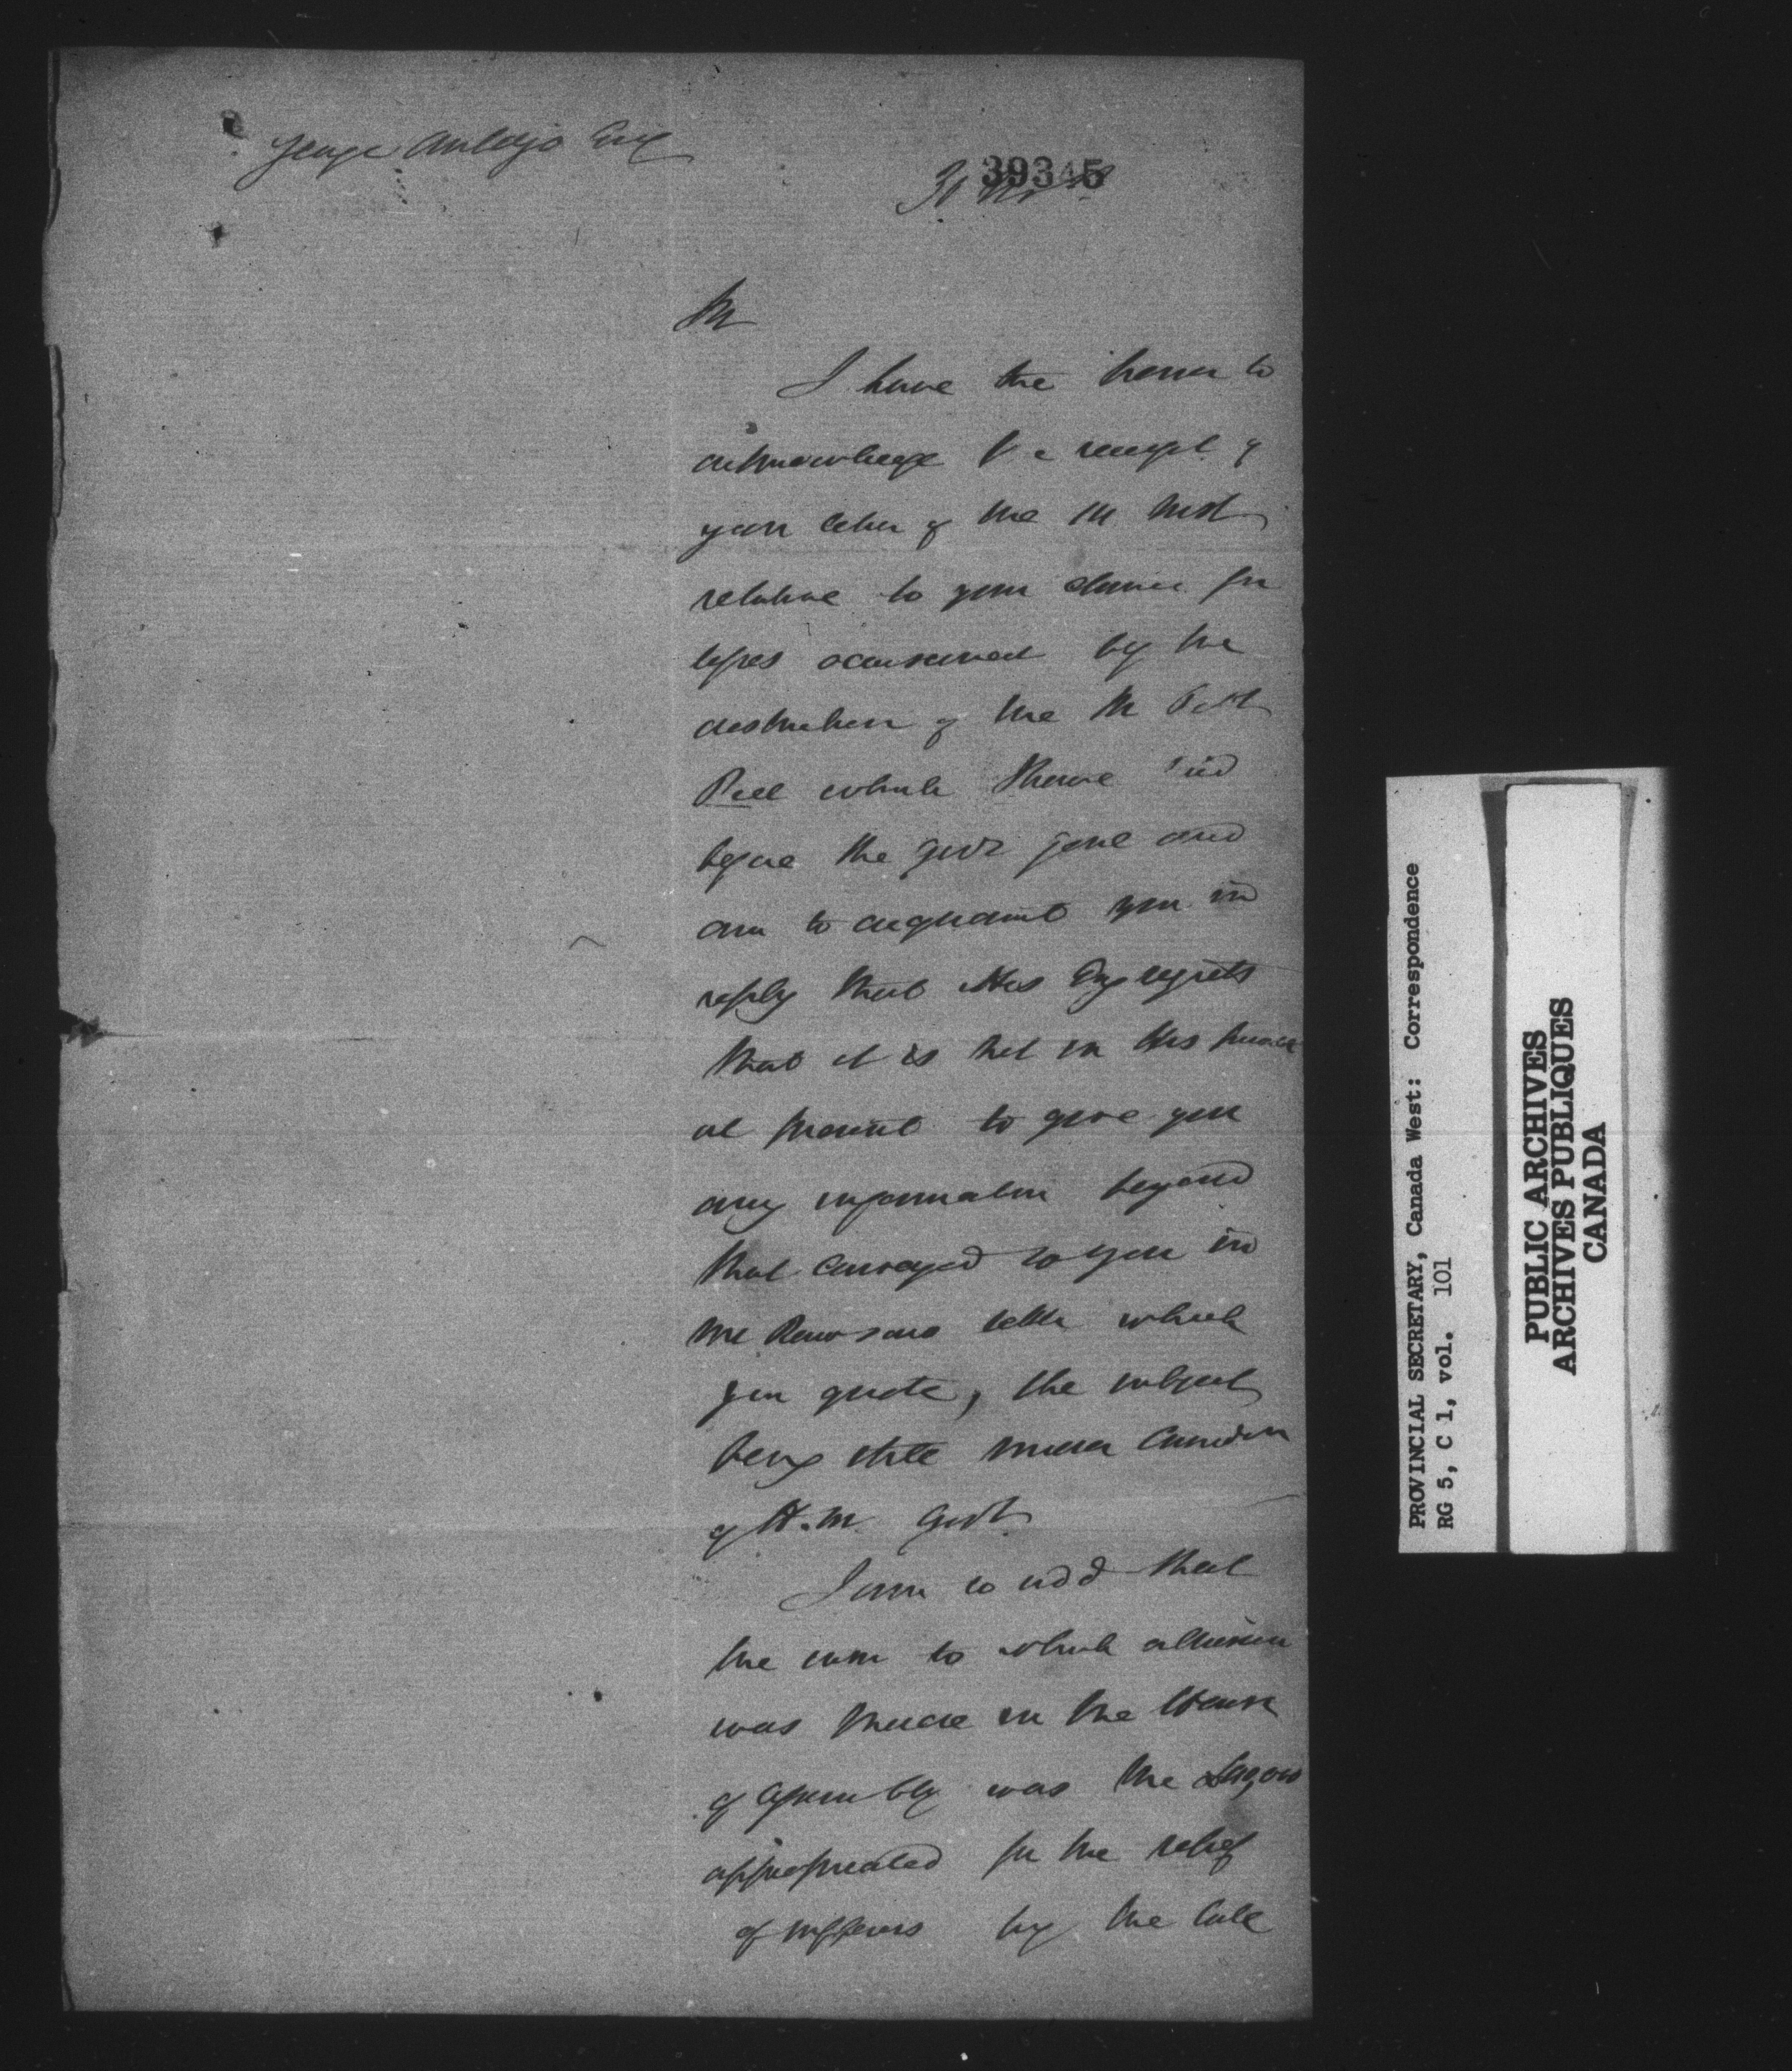 George Auldjo Esq
39345
31
Sir
I have the honor to
acknowledge the receipt of
your letter of the 1st Inst
relative to your claim for
losses occasioned by the
destruction of the Sir Robt
Peel which I have laid
before the Govr Genl and
am to acquaint you in
reply that His Exy regrets
that it is not in His power
at present to give you
any information beyond
that conveyed to you in
Mr Rawsons letter which
you quote, the subject
being still under Consideron
of H.M. Govt.
I am to add that
the sum to which allusion
was made in the House
of Assembly was the
appropriated for the relief
of sufferers by the late
PROVINCIAL SECRETARY, Canada West: Correspondence
RG 5, C 1, vol. 101
PUBLIC ARCHIVES
ARCHIVES PUBLIQUES
CANADA